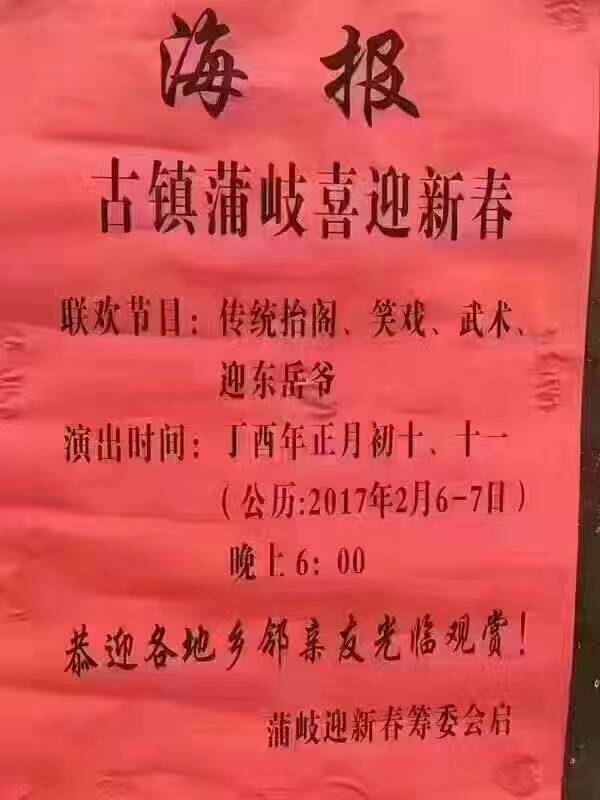 海报
古镇蒲岐喜迎新春
联欢节目：传统抬阁、笑戏、武术、
迎东岳爷
演出时间：丁酉年正月初十、十一
（公历:2017年2月6-7日）
晚上6：00
恭迎各地乡邻亲友光临观赏！
蒲岐迎新春筹委会启